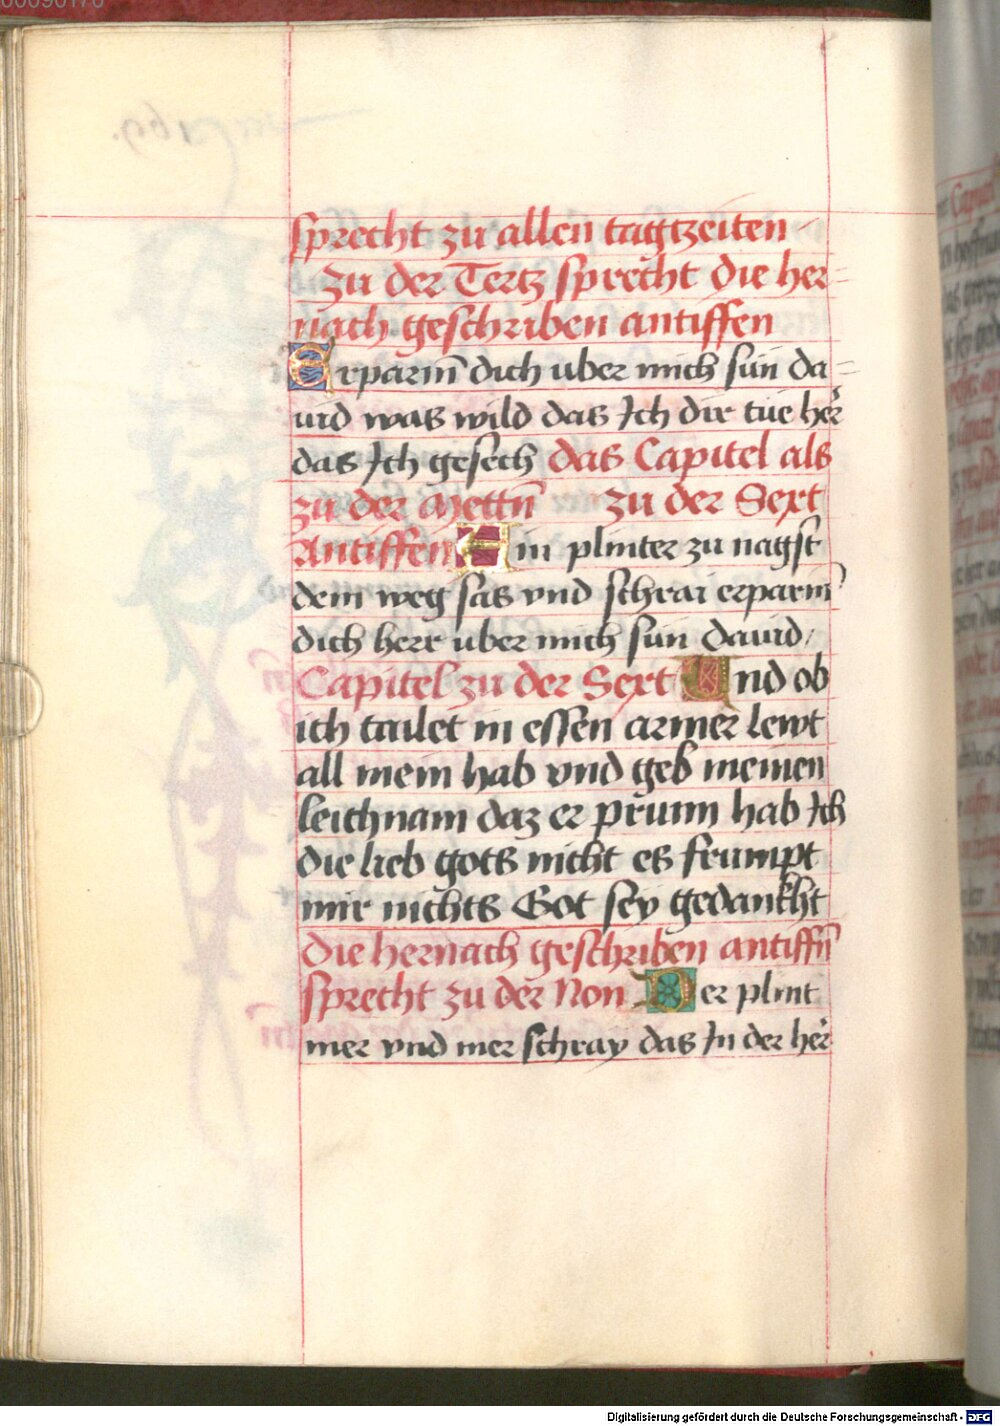 sprecht zu allen tagtzeiten
Zu der Tertz sprecht die her=
nach geschriben antiffen
Erparm̄ dich uber mich sun da=
uid was wild das Ich dir tue her
das Ich gesech das Capitel als
zu der Mettn̄ zu der Sext
Antiffen Ein plinter zu nagst
dem weg sas vnd schrai erparm̄
dich herr uber mich sun dauid/
Capitel zu der Sext Und ob
ich tailet in essen armer lewt
all mein hab vnd geb meinen
leichnam daz er prunn hab Ich
die lieb gots nicht es frumpt
mir nichts Got sey gedankht
die hernach geschriben antiffn̄
sprecht zu der Non Der plint
mer vnd mer schray das In der her
Digitalisierung gefördert durch die Deutsche Forschungsgemeinschaft - DFG